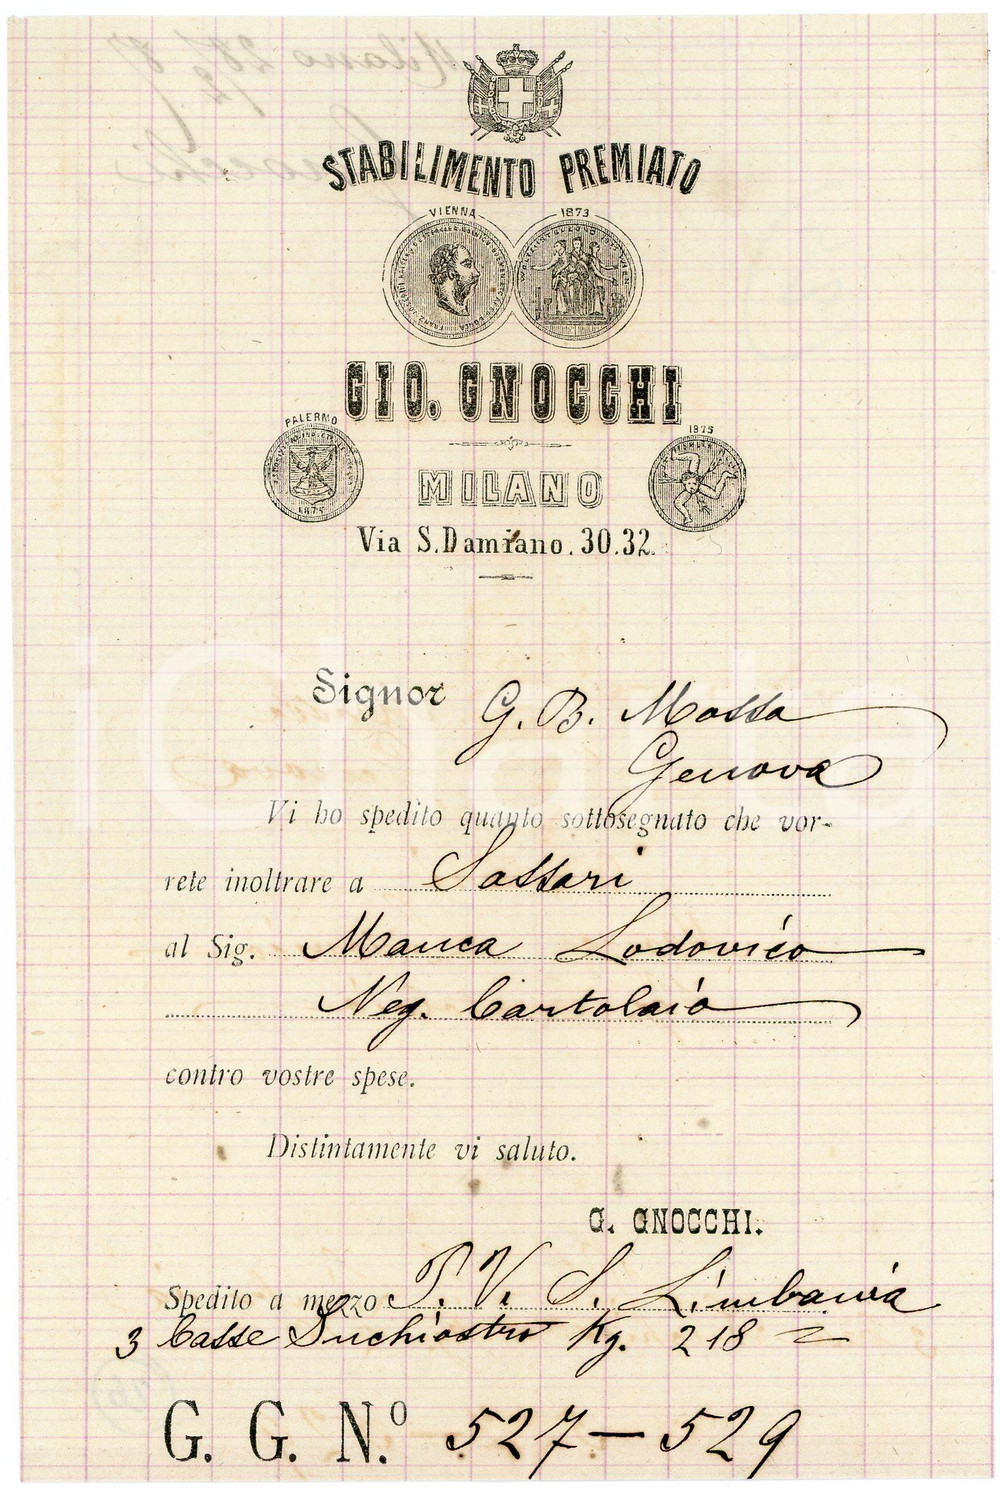 STABILIMENTO PREMIATO
VIENNA 1873
GIO. GNOCCHI
PALERMO 1875
1875
MILANO
Via S. Damiano. 30. 32.
Signor G. B. Mossa
Genova
Vi ho spedito quanto sottosegnato che vor-
rete inoltrare a Sassari
al Sig. Manca Lodovico
Neg. Cartolaio
contro vostre spese.
Distintamente vi saluto.
G. GNOCCHI.
Spedito a mezzo P. V. S. Limbania
3 Casse Inchiostro Kg. 218
G. G. N.º 527 — 529